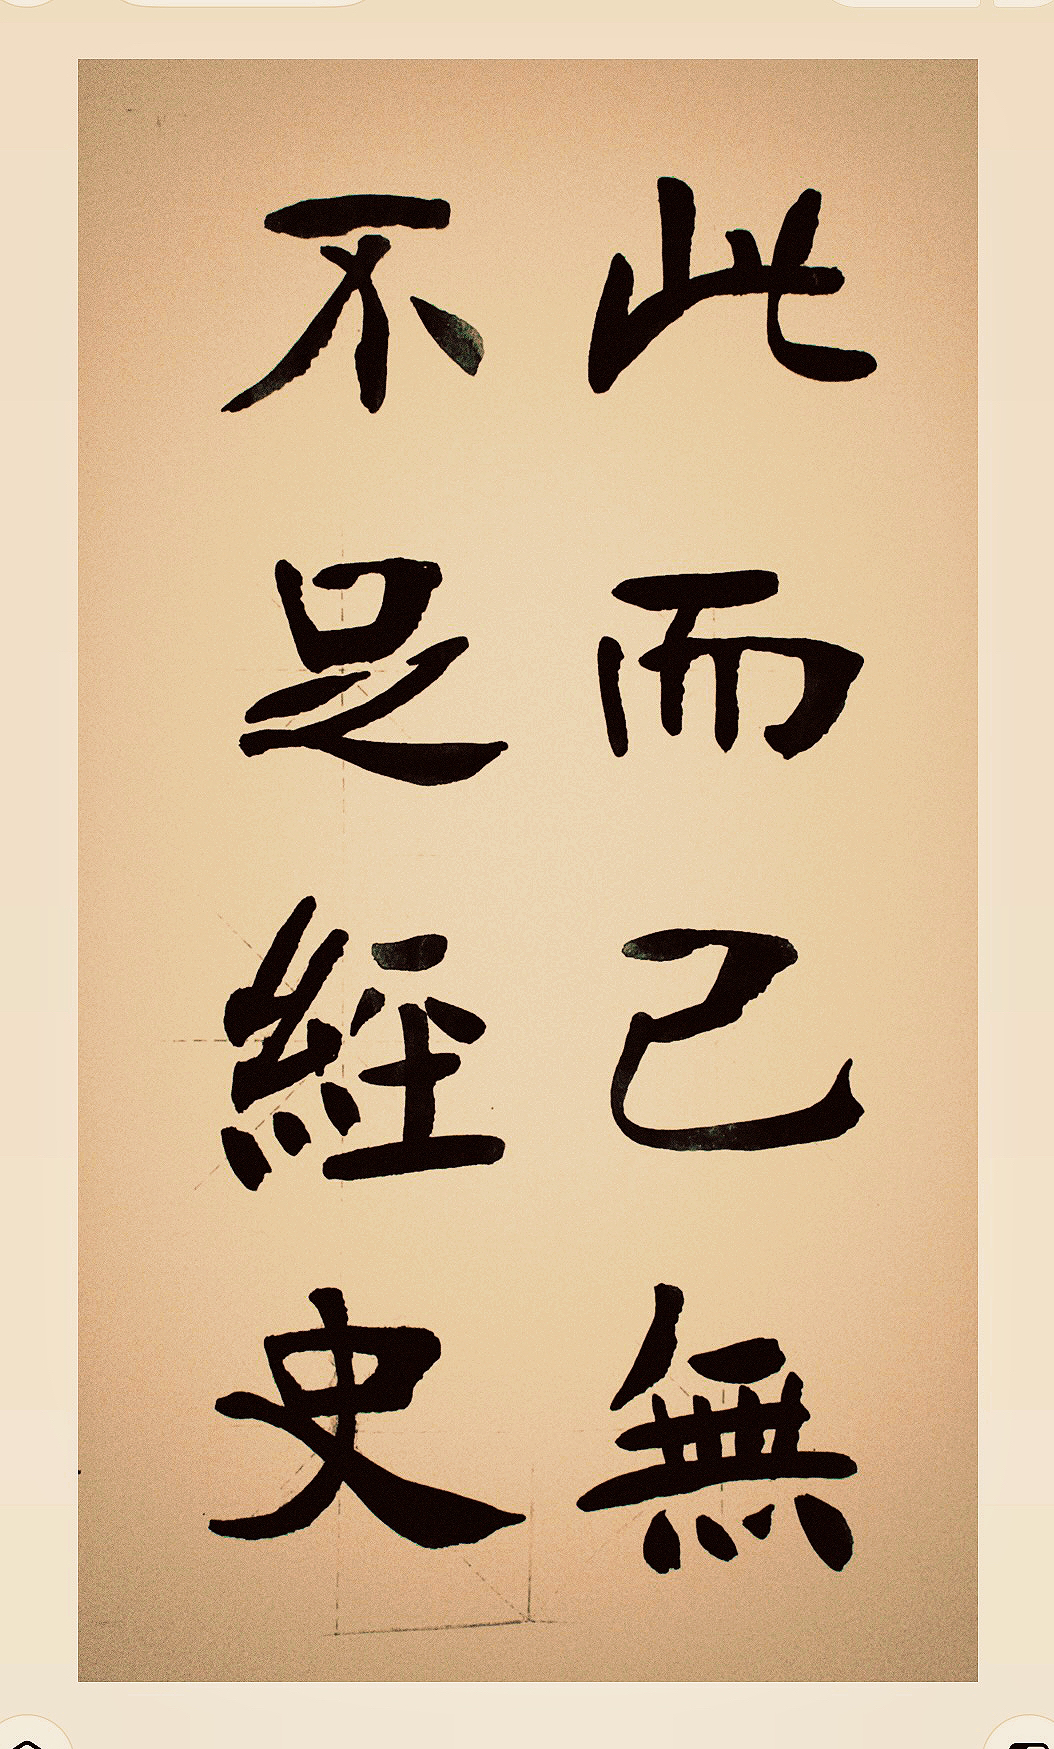 此而已無
不足經史